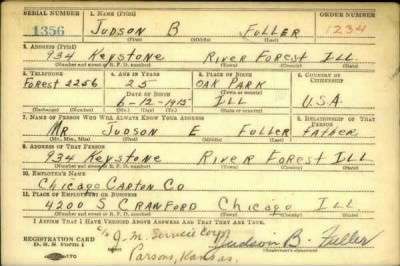 SERIAL NUMBER 1. NAME (Print) ORDER NUMBER
1356 JUDSON B FULLER 1234
(First) (Middle) (Last)
2. ADDRESS (Print)
934 Keystone RIVER FOREST ILL.
(Number and street or R. F. D. number) (Town) (County) (State)
3. TELEPHONE 4. AGE IN YEARS 5. PLACE OF BIRTH 6. COUNTRY OF CITIZENSHIP
Forest 2256 25 OAK PARK
DATE OF BIRTH (Town or county)
6-12-1915 ILL U.S.A.
(Exchange) (Number) (Mo.) (Day) (Yr.) (State or country)
7. NAME OF PERSON WHO WILL ALWAYS KNOW YOUR ADDRESS 8. RELATIONSHIP OF THAT PERSON
MR JUDSON E FULLER FATHER
(Mr., Mrs., Miss) (First) (Middle) (Last)
9. ADDRESS OF THAT PERSON
934 Keystone RIVER FOREST ILL
(Number and street or R. F. D. number) (Town) (County) (State)
10. EMPLOYER'S NAME
Chicago CARTON Co
11. PLACE OF EMPLOYMENT OR BUSINESS
4200 S CRAWFORD Chicago ILL
(Number and street or R. F. D. number) (Town) (County) (State)
I AFFIRM THAT I HAVE VERIFIED ABOVE ANSWERS AND THAT THEY ARE TRUE.
REGISTRATION CARD
D. S. S. Form 1
c/o J. M. Service Corp Judson B. Fuller
Parsons, Kansas.
(Registrant's signature)